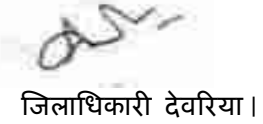 जिलाधिकारी देवरिया।